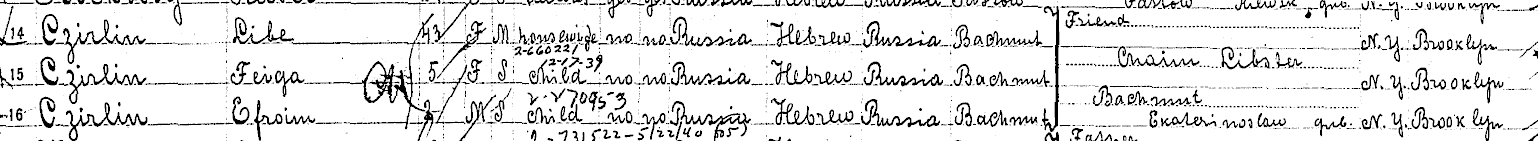 14 Czirlin Libe 43 F M housewife no no Russia Hebrew Russia Bachmut Friend N. Y. Brooklyn
2-66022
12-17-39
15 Czirlin Feiga 5 F S child no no Russia Hebrew Russia Bachmut Chaim Libster N. Y. Brooklyn
2-270953
16 Czirlin Efroim M S child no no Russia Hebrew Russia Bachmut Bachmut Ekaterinoslaw gub. N. Y. Brooklyn
2-731522-5/22/40